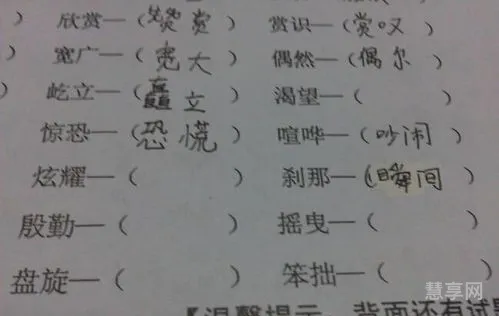 ) 欣赏—(赞赏) 赏识—(赏叹
) 宽广—(宽大) 偶然—(偶尔)
) 屹立—(矗立) 渴望—( )
惊恐—(恐慌) 喧哗—(吵闹)
炫耀—( ) 刹那—(瞬间)
殷勤—( ) 摇曳—( )
盘旋—( ) 笨拙—( )
【温馨提示 背面还有试题
慧享网